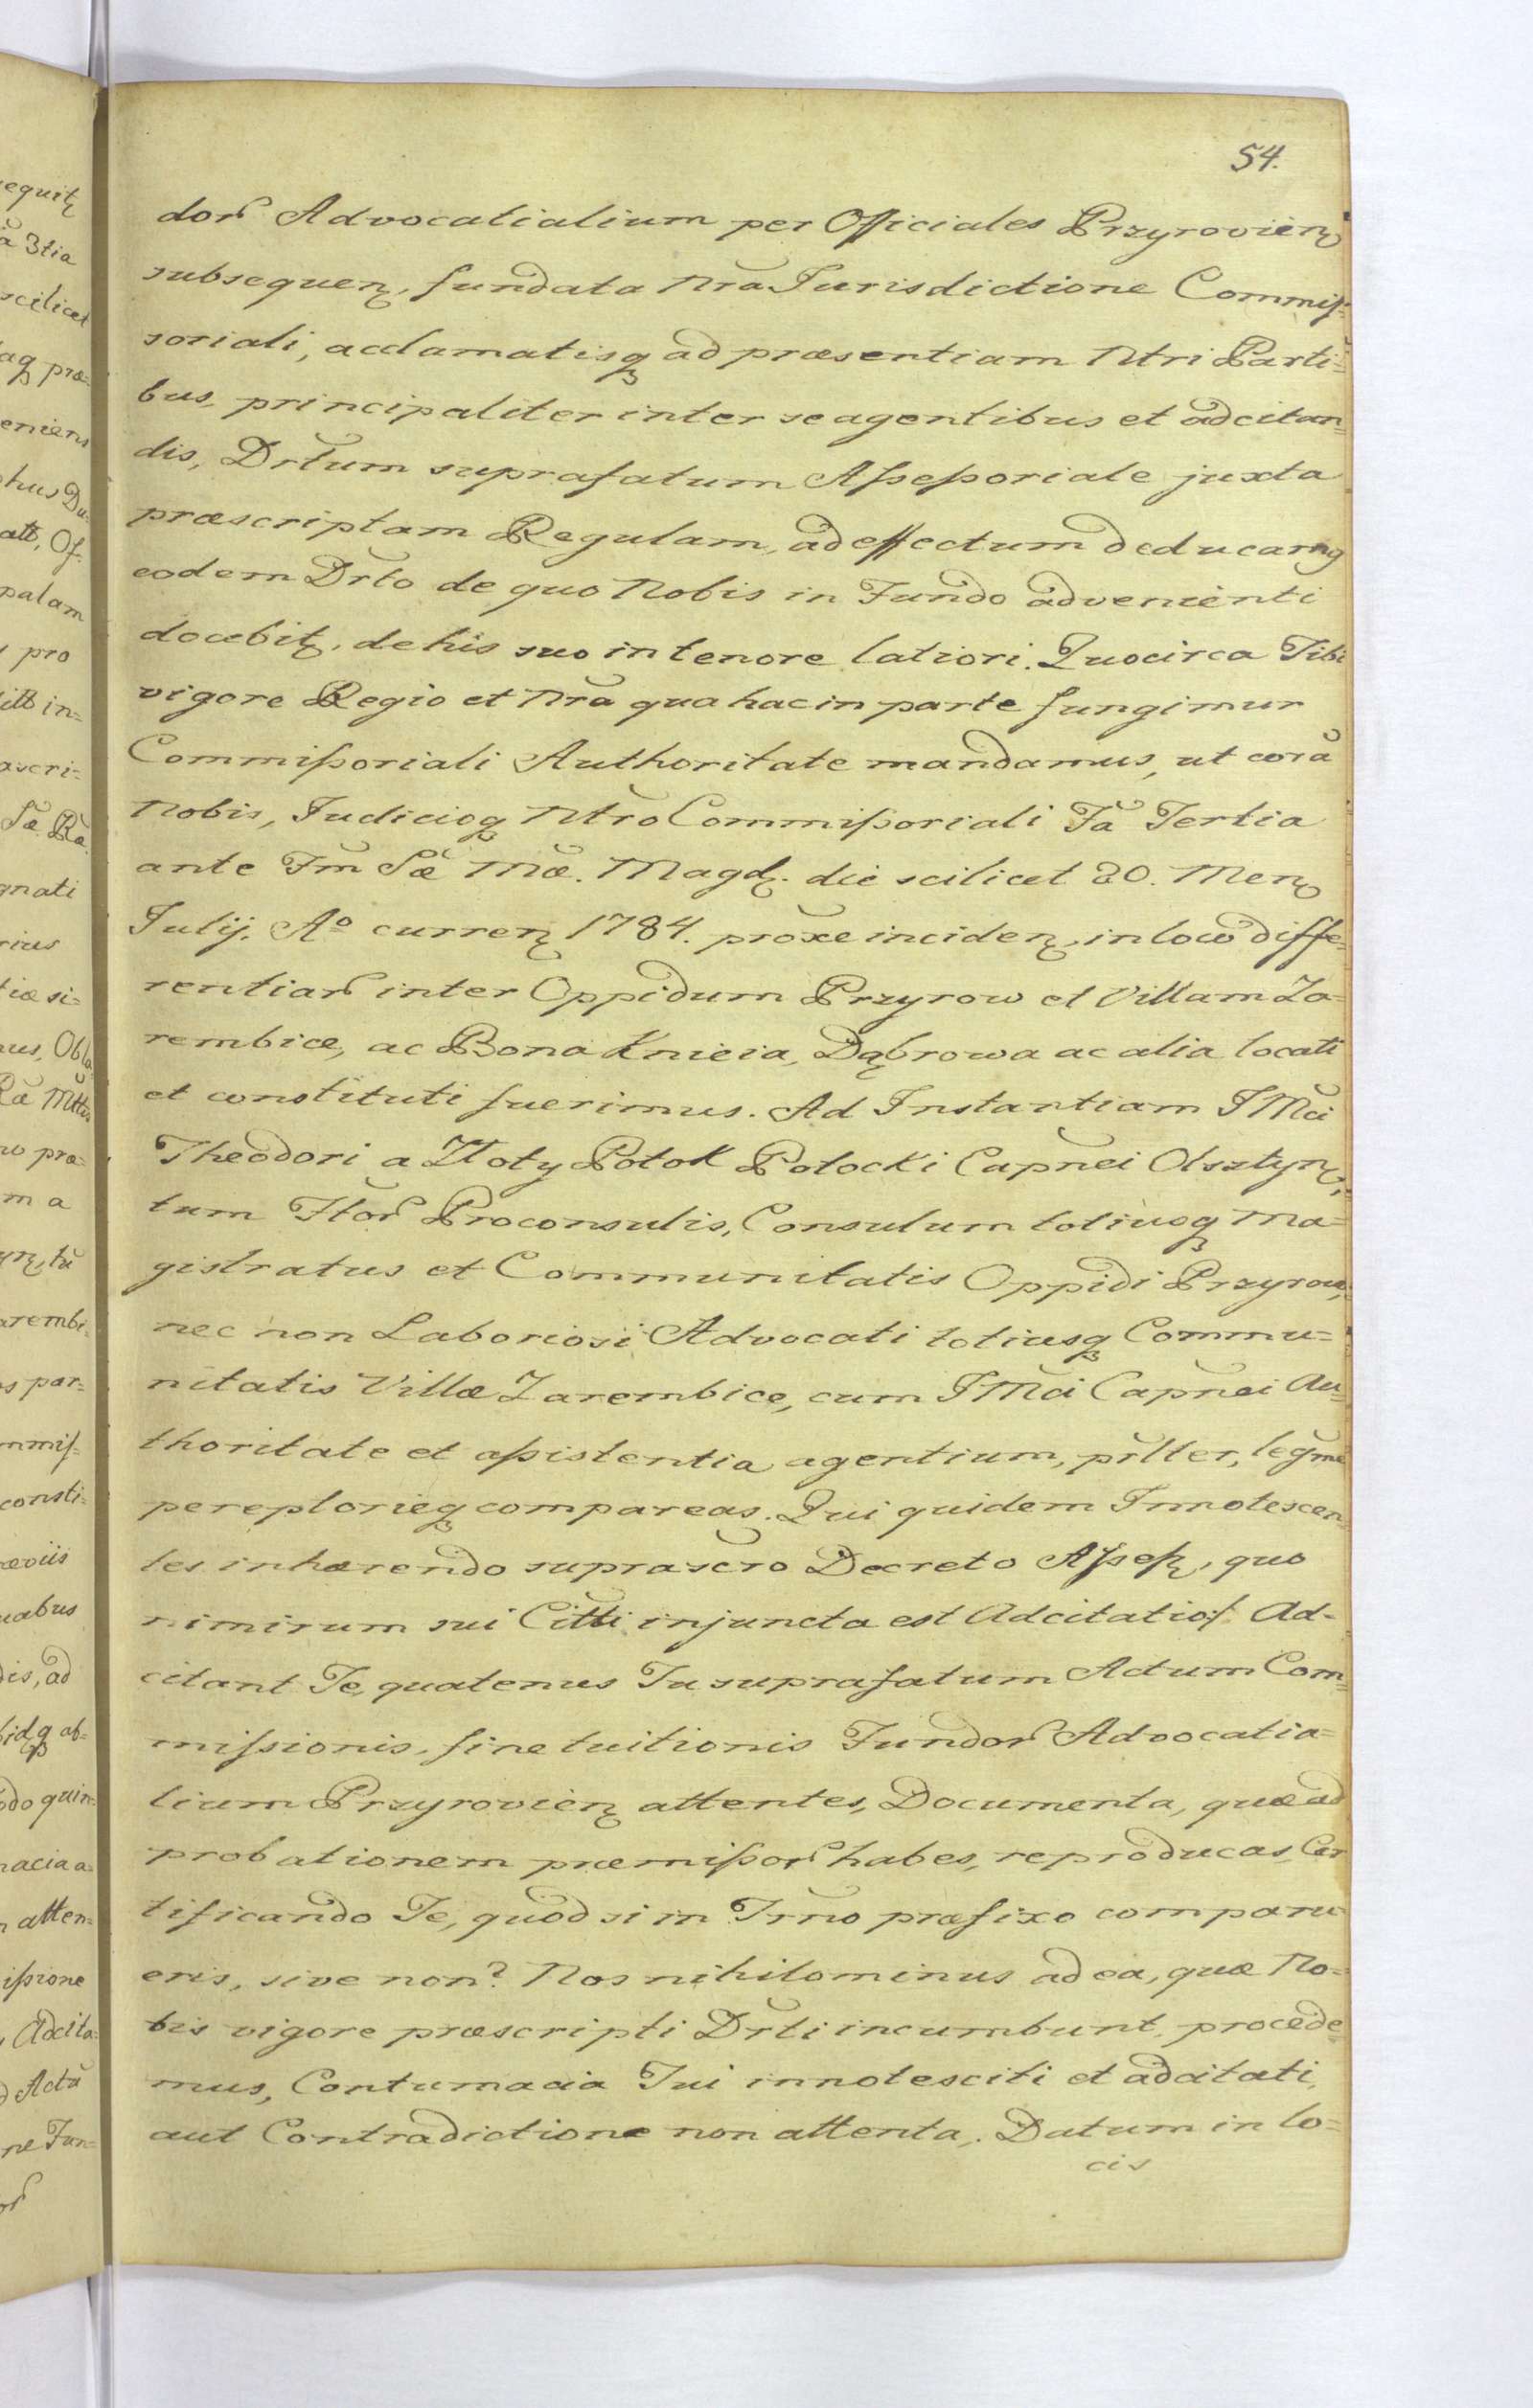 54.
dor Advocatialium per Officiales Przyrovien
subsequen, fundata nra Jurisdictione Commis=
soriali, acclamatisq ad præsentiam Ntri Parti=
bus, principaliter inter se agentibus et adcitan=
dis, Drtum suprafatum Assessoriale juxta
præscriptam Regulam, ad effectum deducamg
eodem Drto de quo Nobis in Fundo advenienti
docebit, de his suo in tenore latiori. Quocirca Tibi
vigore Regio et Nra qua hac in parte fungimur
Commissoriali Authoritate mandamus, ut corã
Nobis, Judicioq Ntro Commissoriali Fã Tertia
ante Fm Sæ Mæ. Magd. die scilicet 20. Men
Julij. Aº curren 1784. proxe inciden, in loco diffe=
rentiar inter Oppidum Przyrow et Villam Za=
rembice, ac Bona Knieia, Dąbrowa ac alia locati
et constituti fuerimus. Ad Instantiam JMci
Theodori a Złoty Potok Potocki Capnei Olsztyn,
tum Htor Proconsulis, Consulum totiusq Ma=
gistratus et Communitatis Oppidi Przyrow,
nec non Laboriosi Advocati totiusq Commu=
nitatis Villæ Zarembice, cum JMci Capnei Au=
thoritate et assistentia agentium, prlter, legme
pereptorieq compareas. Qui quidem Innotescen=
tes inhærendo suprascro Decreto Assess, quo
nimirum sui Citti injuncta est Adcitatio, Ad-
citant Te, quatenus Tu suprafatum Actum Com=
missionis, sine tuitionis Fundor Advocatia=
lium Przyrovien attentes, Documenta, quæ ad
probationem præmissor habes, reproducas, Cer
tificando Te, quod si in Trno præfixo comparu=
eris, sive non? Nos nihilominus ad ea, quæ No=
bis vigore præscripti Drti incumbunt, procede
mus, Contumacia Tui innotesciti et adcitati,
aut Contradictione non attenta. Datum in lo=
cis